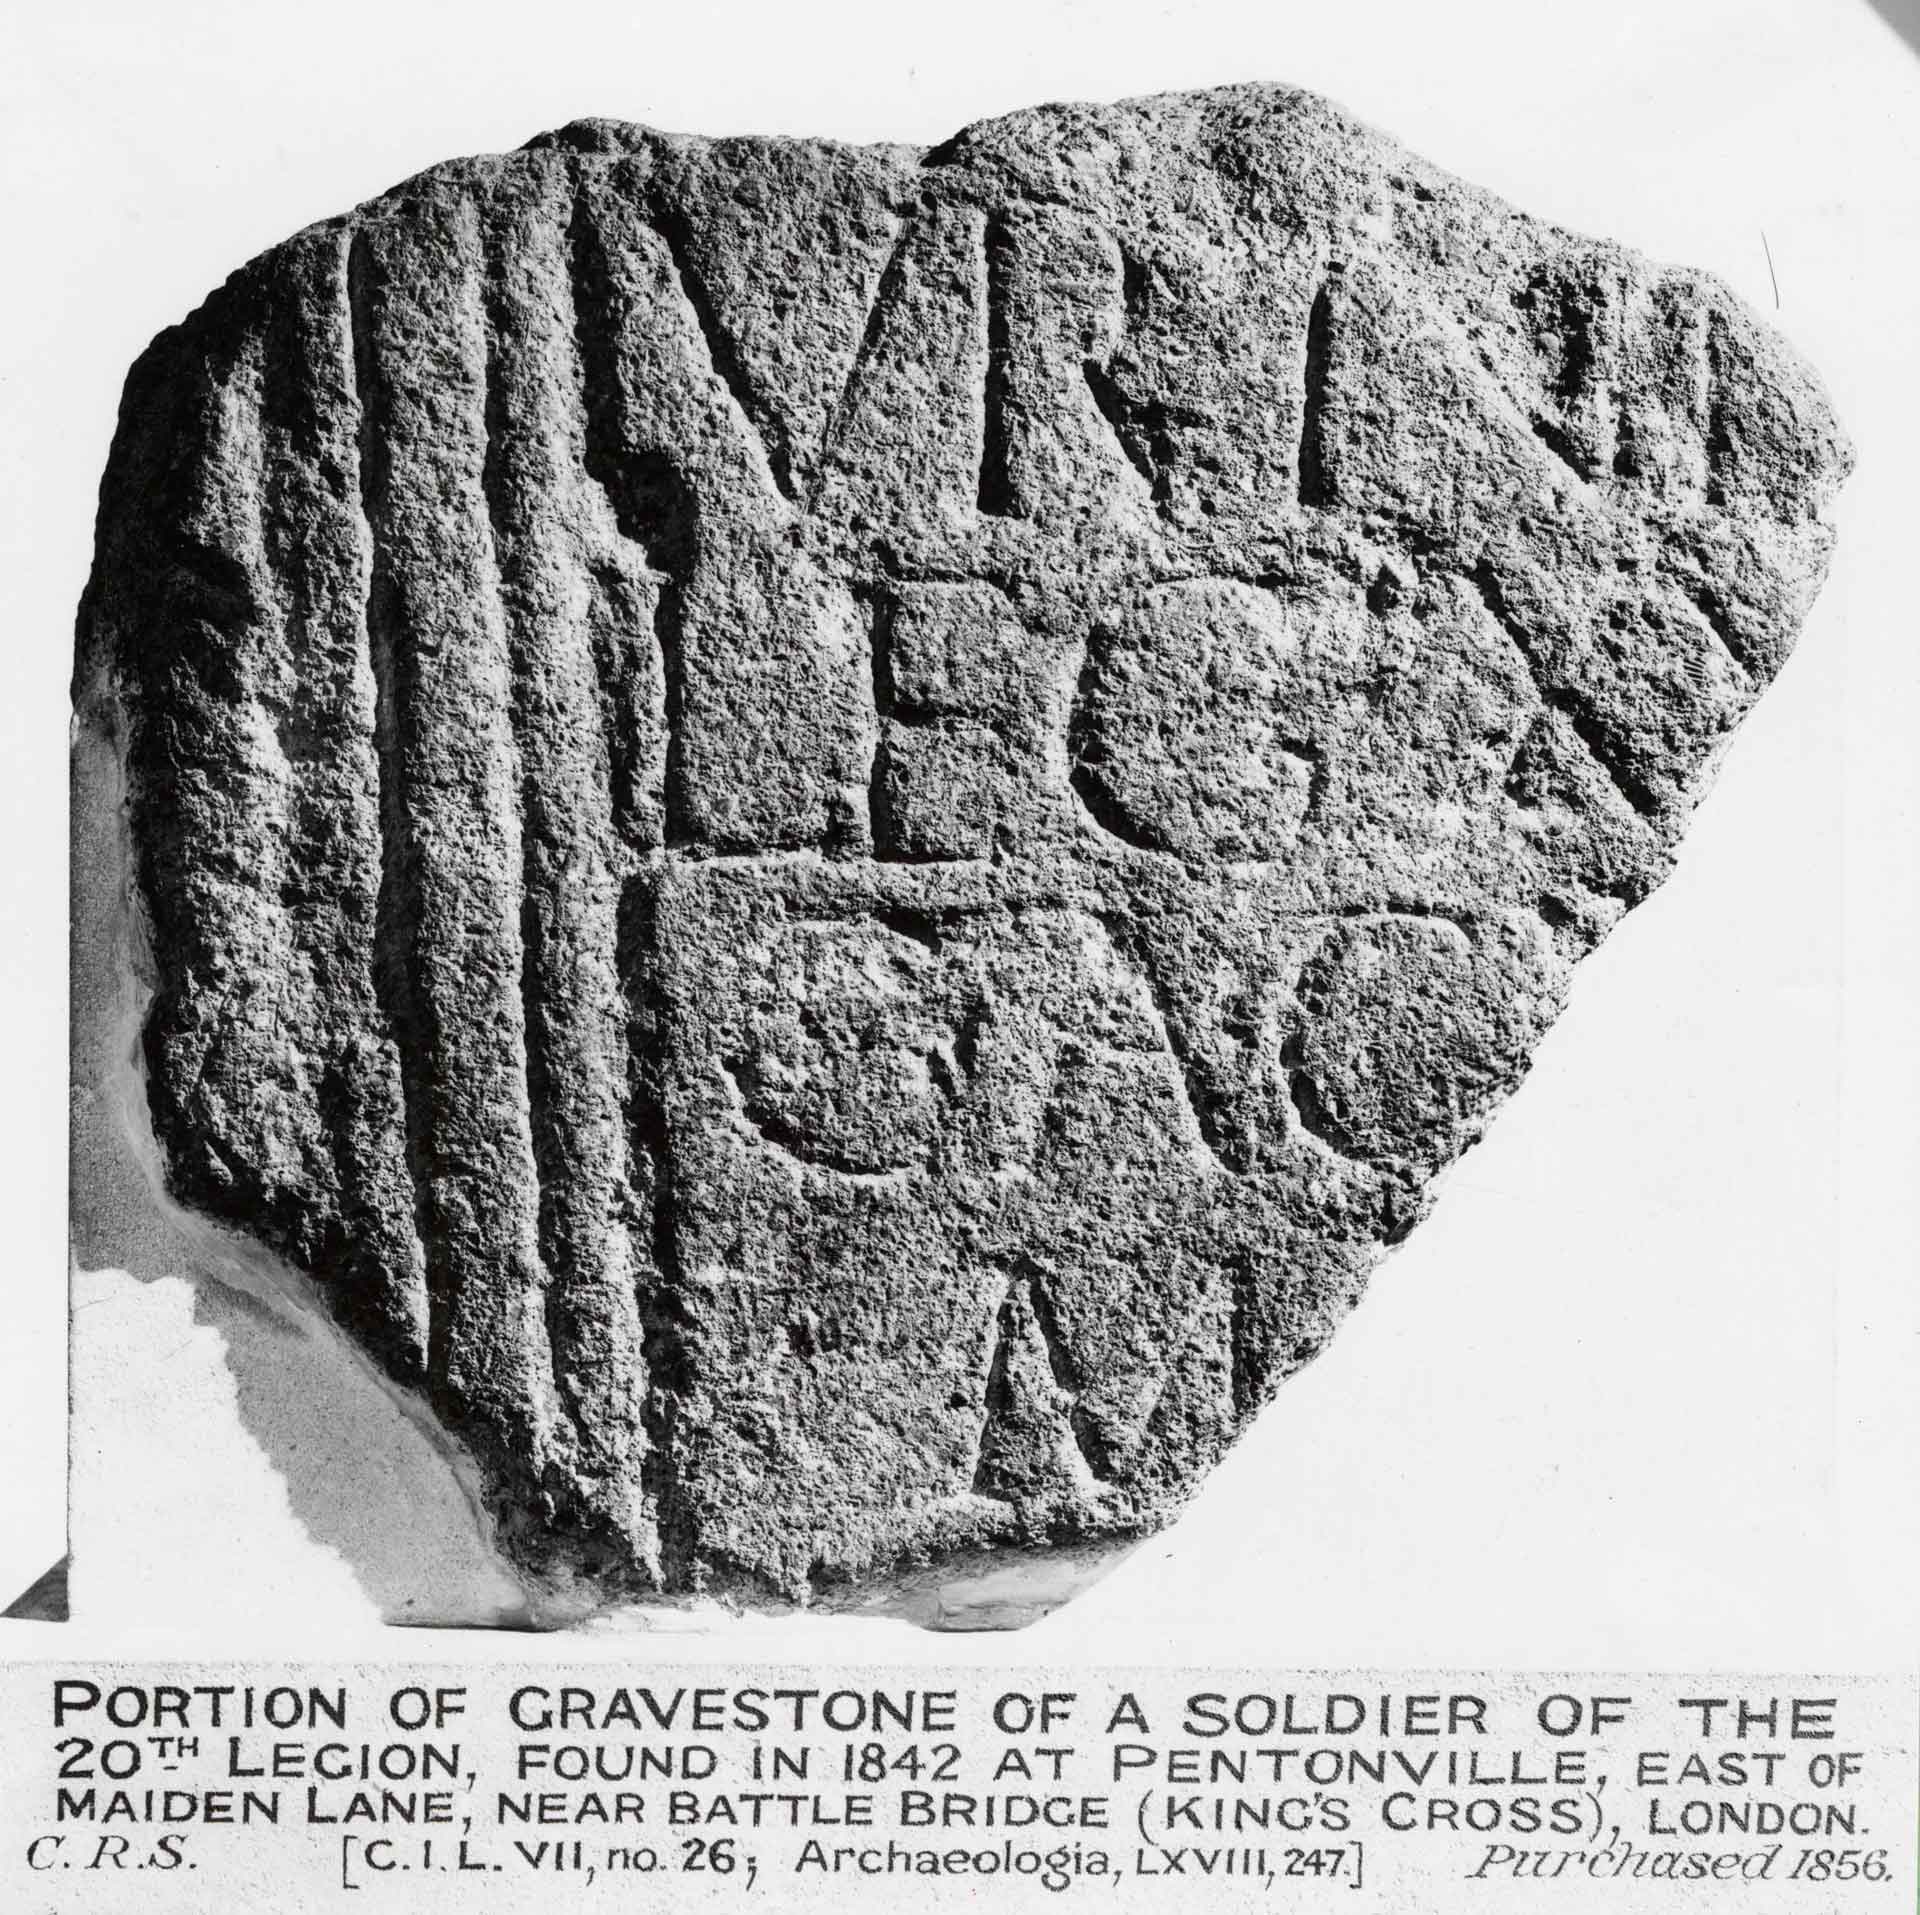 VRN
LEG XX
GAC
M
PORTION OF GRAVESTONE OF A SOLDIER OF THE
20TH LEGION, FOUND IN 1842 AT PENTONVILLE, EAST OF
MAIDEN LANE, NEAR BATTLE BRIDGE (KING'S CROSS), LONDON.
C.R.S. [C.I.L. VII, no. 26; Archaeologia, LXVIII, 247.] Purchased 1856.